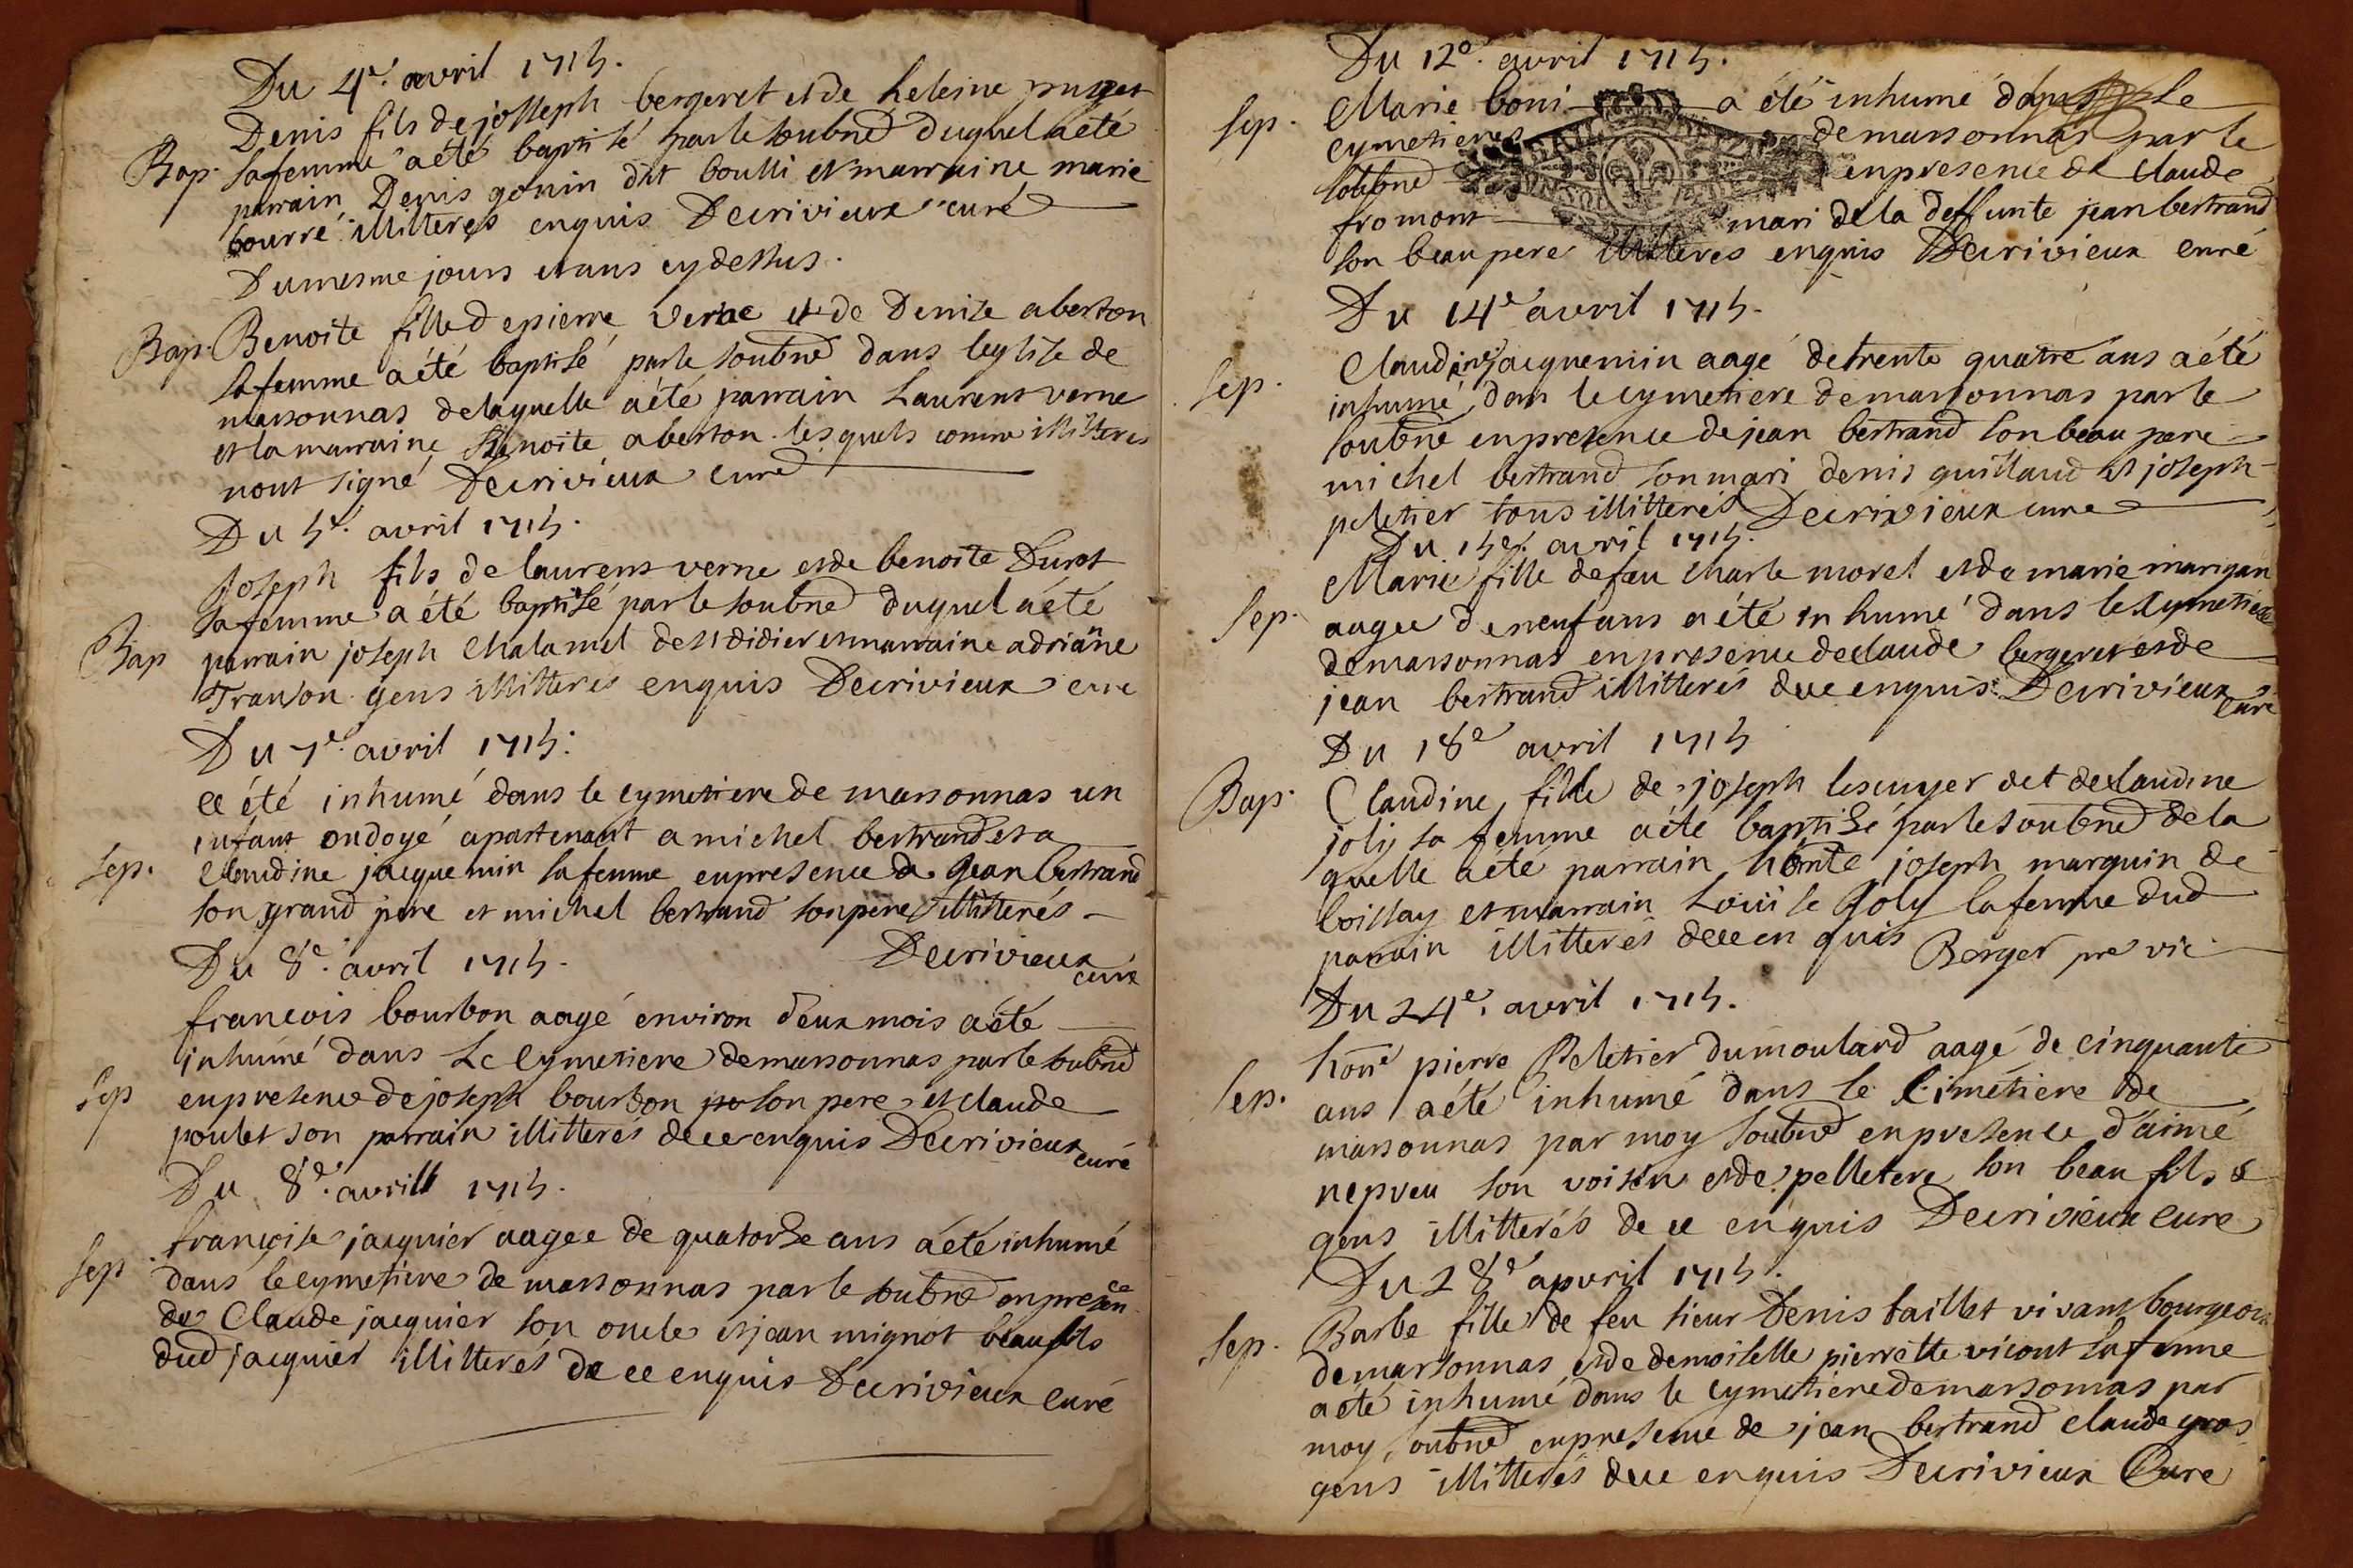 Du 4e. avril 1715.
Denis fils de josseph bergeret et de heleine puget
Bap. sa femme a été baptisé par le soubné duquel a été
parrain Denis gonin dit boulli et marraine marie
bourré illitteres enquis Decrivieux curé
Du mesme jours et ans cy dessus.
Bap. Benoite fille de pierre verne et de Denise aberton
sa femme a été baptisé par le soubné dans leglise de
marsonnas de laquelle a été parrain Laurens verne
et la marraine Benoite aberton lesquels comme illitteres
nont signé Decrivieux curé
Du 5e. avril 1715.
Joseph fils de laurens verne et de benoite Durot
sa femme a été baptisé par le soubné duquel a été
Bap parrain joseph Chalamel de st didier et marraine adrianne
Transon gens illitteres enquis Decrivieux cure
Du 7e. avril 1715.
a été inhumé dans le cymetiere de marsonnas un
enfant ondoyé apartenant a michel bertrand et a
Sep. Claudine jacquemin sa femme en presence de Jean bertrand
son grand pere et michel bertrand son pere illitterés
Decrivieux curé
Du 8e. avril 1715.
francois bourbon aagé environ deux mois a été
inhumé dans Le Cymetiere de marsonnas par le soubné
Sep en presence de joseph bourbon son pere et claude
poulet son parrain illitteres de ce enquis Decrivieux curé
Du 8e. avrill 1715.
françoise jacquier aagee de quatorse ans a été inhumé
Sep dans le cymetiere de marsonnas par le soubné en presence
de Claude jacquier son oncle et jean mignot beaufils
dud jacquier illitterés de ce enquis Decrivieux Curé
Du 12e. avril 1715.
Sep. Marie boni a été inhumé dans le
cymetieres de marsonnas par le
soubné en presence de Claude
fromont mari de la deffunte jean bertrand
son beau pere illitteres enquis Decrivieux curé
Du 14e avril 1715.
Claudine jacquemin aagé de trente quatre ans a été
Sep. inhumé dans le cymetiere de marsonnas par le
soubné en presence de jean bertrand son beau pere
michel bertrand son mari denis guillaud et joseph
peletier tous illitterés Decrivieux cure
Du 15e. avril 1715.
Marie fille de feu charle morel et de marie marigan
Sep. aagee de neuf ans a été inhumé dans le cymetiere
de marsonnas en presence de claude bergeret et de
jean bertrand illitterés de ce enquis. Decrivieux Curé
Du 18e avril 1715
Bap. Claudine fille de joseph lescuyer et de claudine
joly sa femme a été baptisé par le soubné de la
quelle a été parrain honte joseph marguin de
boissay et marrain Louise Joly la femme dud
parrain illitterés de ce enquis Berger pre vic
Du 24e. avril 1715.
hone pierre Peletier du moulard aagé de cinquante
Sep. ans a été inhumé dans le Cimétiere de
marsonnas par moy soubné en presence d'aimé
nepveu son voisin et de pelletere son beau fils
gens illitterés de ce enquis Decrivieux Cure
Du 28e apvril 1715.
Sep. Barbe fille de feu sieur Denis taillet vivant bourgeois
de marsonnas et de demoiselle pierrette vicont sa femme
a été inhumé dans le cymetiere de marsonnas par
moy soubné en presence de jean bertrand claude gros
gens illitterés de ce enquis Decrivieux Cure